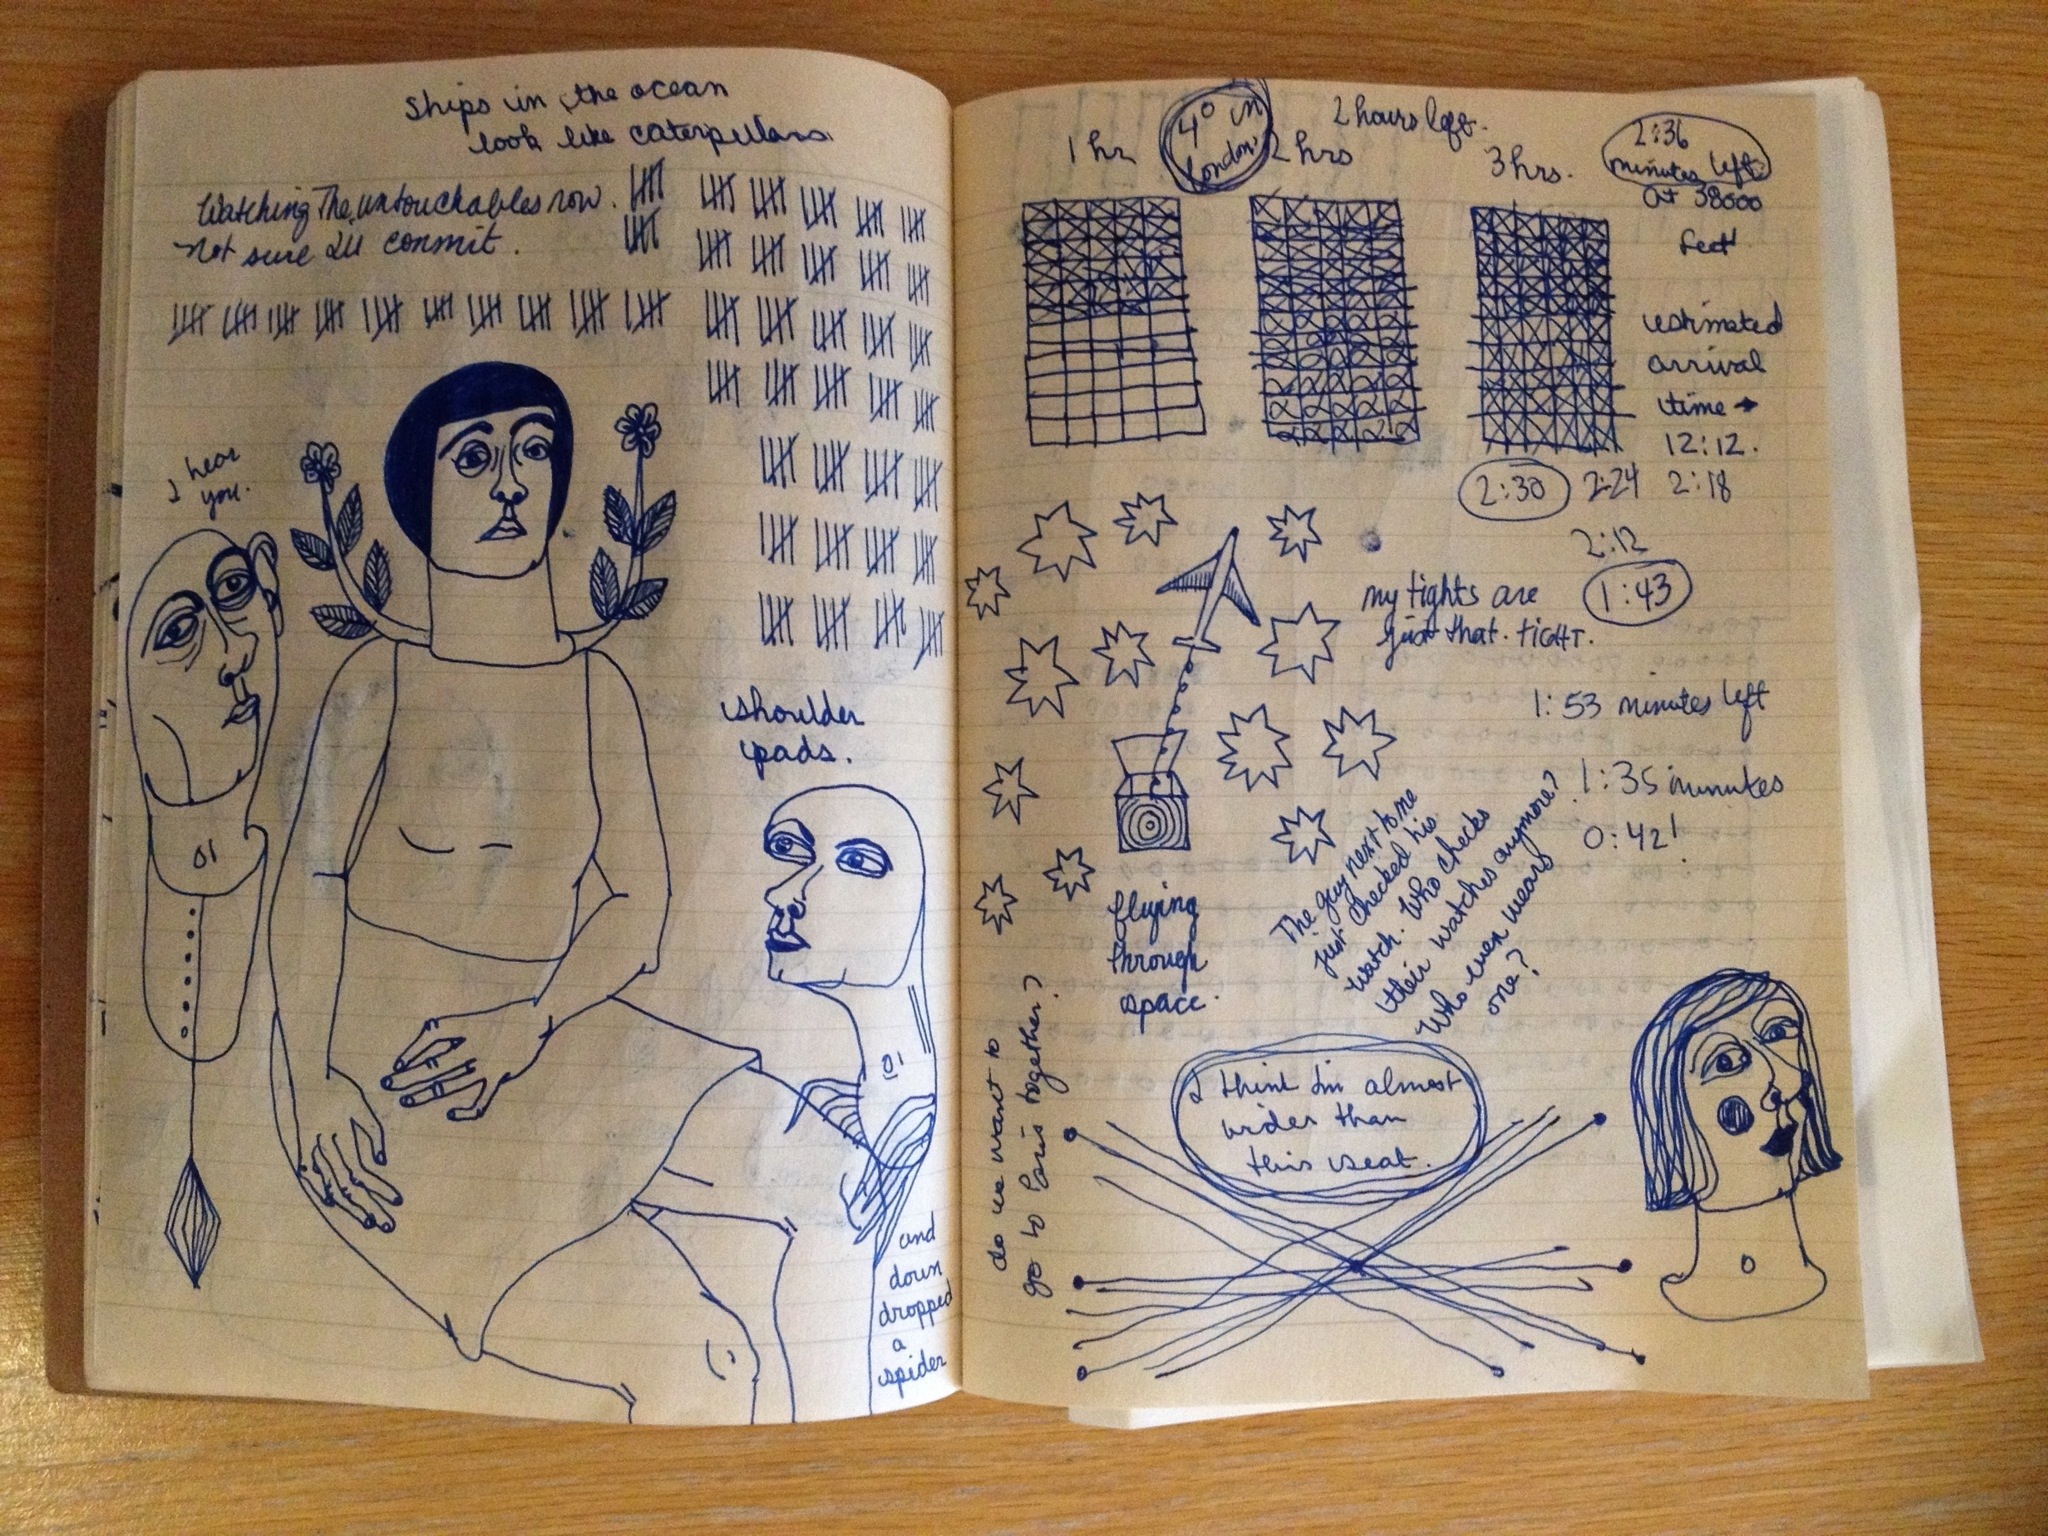 Ships in the ocean
look like caterpillars
Watching The untouchables now.
not sure I'll commit.
I hear
you.
01
shoulder
pads.
01
and
down
dropped
a
spider
1 hr
4° in
London
2 hrs
2 hours left.
3 hrs.
2:36
minutes left
at 38000
feet
estimated
arrival
time →
12:12.
2:30
2:24
2:18
2:12
1:43
my tights are
just that. tight.
1:53 minutes left
1:35 minutes
0:42!
The guy next to me
just checked his
watch. Who checks
their watches anymore?
Who even wears
one?
flying
through
space.
do we want to
go to Paris together?
I think I'm almost
wider than
this seat.
0